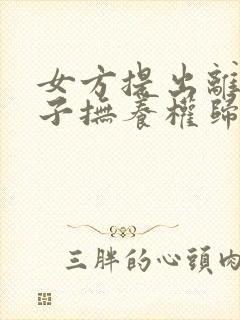 女方提出離
子撫養權歸
三胖的心頭肉